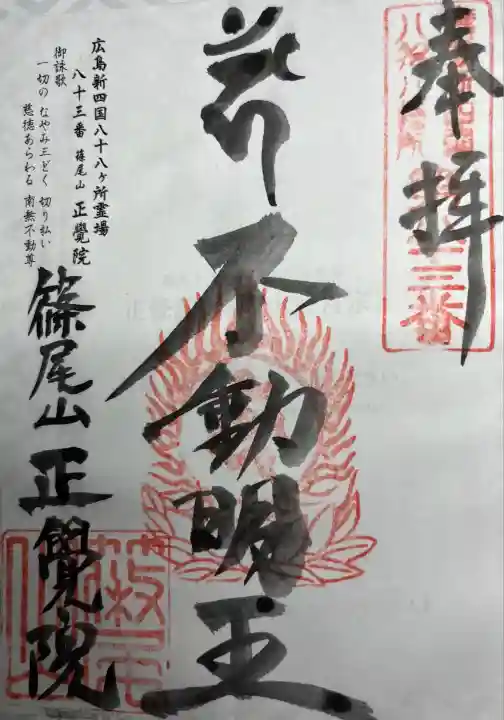 奉拝
不動明王
広島新四国八十八ヶ所霊場
八十三番 篠尾山 正覺院
御詠歌
一切の なやみ三どく 切り払い
慈徳あらわる 南無不動尊
篠尾山 正覺院